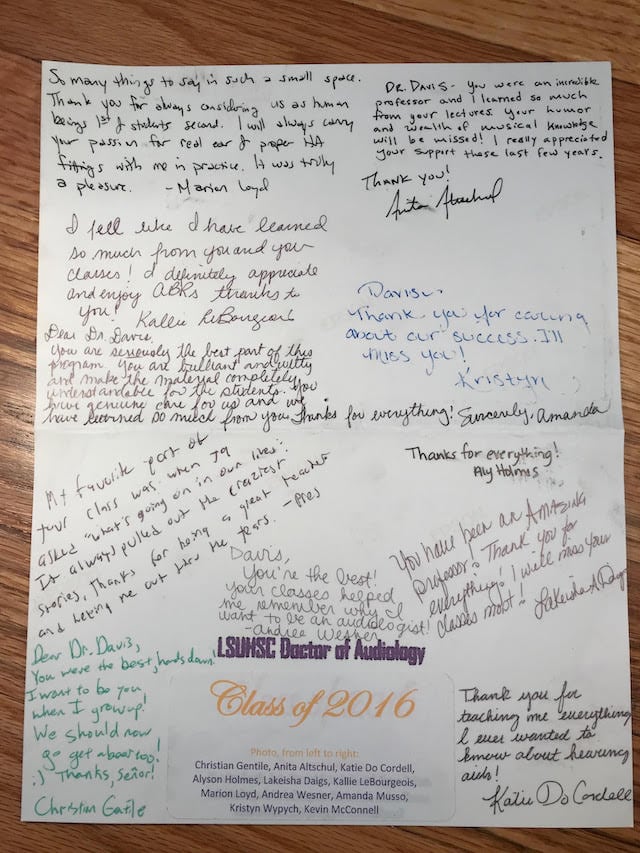 So many things to say in such a small space.
Thank you for always considering us as human
beings 1st & students second. I will always carry
your passion for real ear & proper HA
fittings with me in practice. It was truly
a pleasure. - Marion Loyd
DR. DAVIS - You were an incredible
professor and I learned so much
from your lectures. Your humor
and wealth of musical knowledge
will be missed! I really appreciated
your support these last few years.
THANK YOU!
Anita Altschul
I fell like I have learned
so much from you and your
classes! I definitely appreciate
and enjoy ABRs thanks to
you! Kallie LeBourgeois
Davis,
Thank you for caring
about our success. I'll
miss you!
Kristyn
Dear Dr. Davis,
You are seriously the best part of this
program. You are brilliant and witty
and make the material completely
understandable for the students. You
have genuine care for us and we
have learned so much from you. Thanks for everything! Sincerely, Amanda
Thanks for everything!
Aly Holmes
My favorite part of
your class was when ya
asked "what's going on in our lives."
It always pulled out the craziest
stories. Thanks for being a great teacher
and helping me out thru the years. - Pres
Davis,
You're the best!
Your classes helped
me remember why I
want to be an audiologist!
- Andrea Wesner
You have been an AMAZING
professor! Thank you for
everything! I will miss your
classes most! Lakeisha A Daigs
Dear Dr. Davis,
You were the best, hands down!
I want to be you
when I grow up!
We should now
go get a beer too!
:) Thanks, Señor!
Christian Gentile
LSUHSC Doctor of Audiology
Class of 2016
Photo, from left to right:
Christian Gentile, Anita Altschul, Katie Do Cordell,
Alyson Holmes, Lakeisha Daigs, Kallie LeBourgeois,
Marion Loyd, Andrea Wesner, Amanda Musso,
Kristyn Wypych, Kevin McConnell
Thank you for
teaching me everything
I ever wanted to
know about hearing
aids!
Katie Do Cordell